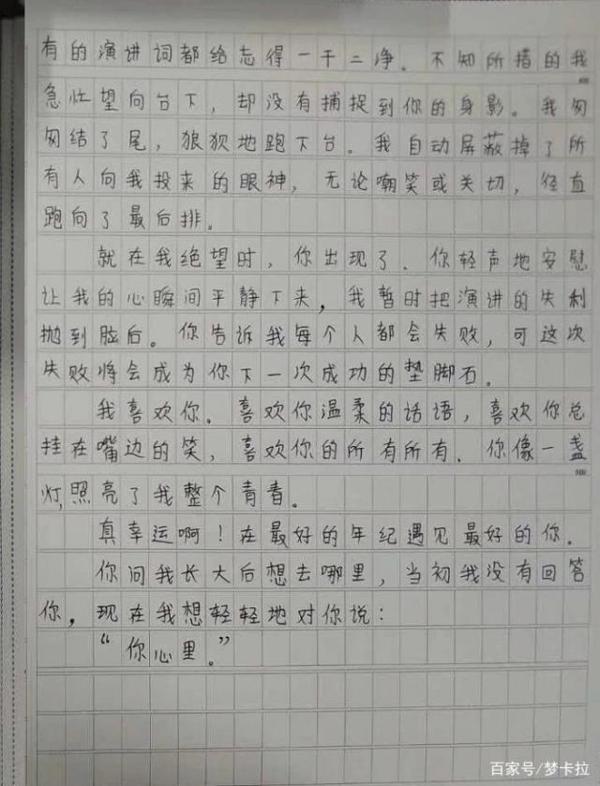 有的演讲词都给忘得一干二净. 不知所措的我
急忙望向台下, 却没有捕捉到你的身影。我匆
匆结了尾, 狼狈地跑下台。我自动屏蔽掉了所
有人向我投来的眼神, 无论嘲笑或关切, 径直
跑向了最后排。
就在我绝望时, 你出现了. 你轻声地安慰
让我的心瞬间平静下来, 我暂时把演讲的失利
抛到脑后。你告诉我每个人都会失败, 可这次
失败将会成为你下一次成功的垫脚石.
我喜欢你. 喜欢你温柔的话语, 喜欢你总
挂在嘴边的笑, 喜欢你的所有所有. 你像一盏
灯, 照亮了我整个青春。
真幸运啊! 在最好的年纪遇见最好的你.
你问我长大后想去哪里, 当初我没有回答
你, 现在我想轻轻地对你说:
“你心里。”
百家号/梦卡拉